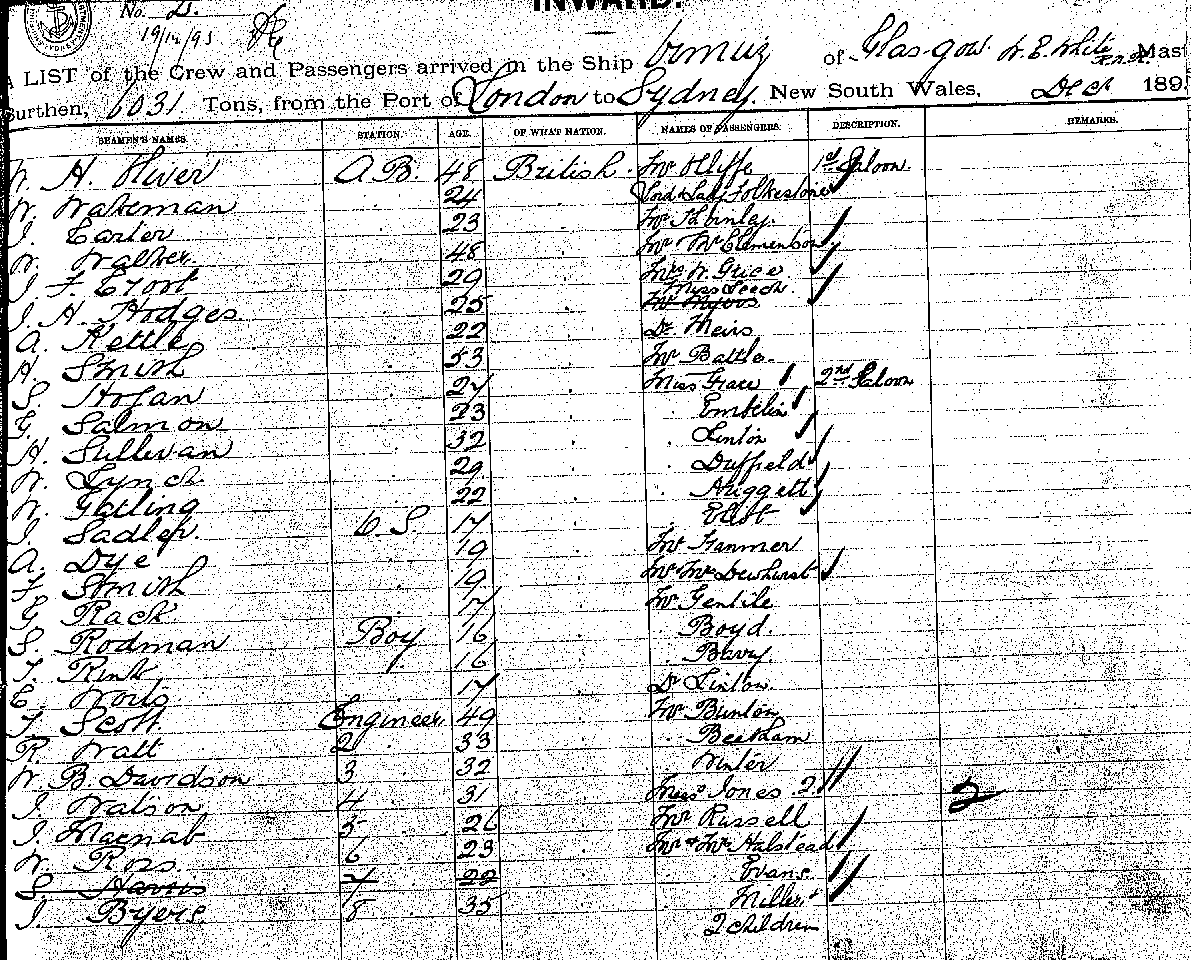 INWARD.
No. 2.
19/12/93
A LIST of the Crew and Passengers arrived in the Ship Ormuz of Glasgow W. E. White Mast
Burthen, 6031 Tons, from the Port of London to Sydney, New South Wales, Dec 189
SEAMEN'S NAMES. STATION. AGE. OF WHAT NATION. NAMES OF PASSENGERS. DESCRIPTION. REMARKS.
W. H. Oliver A.B. 48 British Mr 1st Saloon
W. Wakeman 24 Lord & Lady Folkestone
J. Carter 23 Mr Thornley
W. Walker 48 Mr Mrs Clementson
J. F. 29 Mrs W. Grice
Miss Leach
J. H. Hodges 25
A. Kettle 22 Dr Meirs
H. Smith 53 Mr Battle
S. Hogan 27 Miss Grace 2nd Saloon
G. Salmon 23 Embelin
H. Sullivan 32 Linton
W. Lynch 29 Duffield
W. Gotling 22 Huggett
J. Sadler O.S. 17
A. Dye 19 Mr Hanmer
F. Smith 19 Mr Mrs Dewhurst
G. Rack 17 Mr Gentile
S. Rodman Boy 16 Boyd.
T. Rink 16
E. 17 Dr Linlow
T. Scott Engineer 49 Mr Bunton
R. Watt 2 33 Beekham
W. B. Davidson 3 32 Winter
J. Watson 4 31 Jones 2 2
J. Macnab 5 26 Mr Russell
W. Ross 6 23 Mr & Mrs Halstead
S. Harris 7 22 Evans
J. Byers 8 35 Miller &
2 children